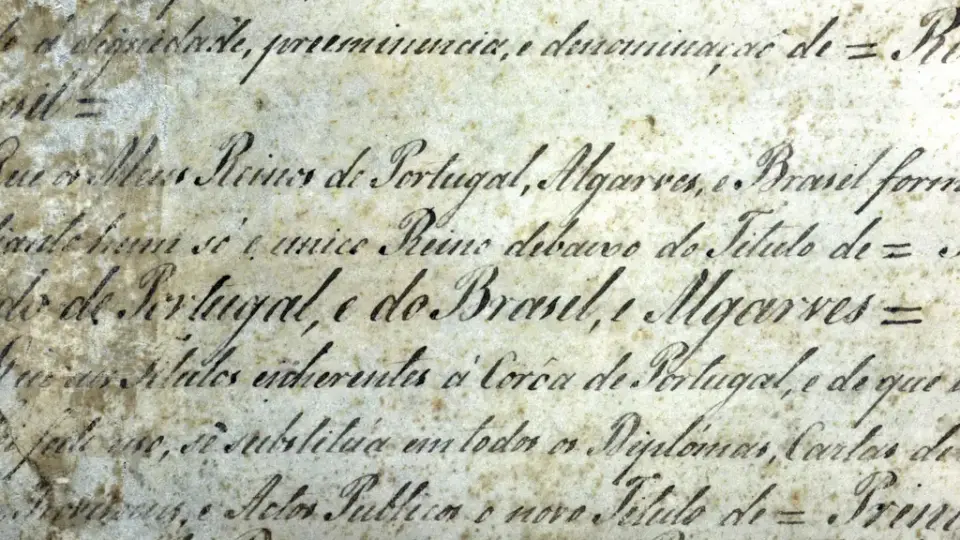 a dignidade, preeminencia, e denominaçaõ de = Re
asil =
Que os Meus Reinos de Portugal, Algarves, e Brasil form
hum só e unico Reino debaixo do Titulo de =
do de Portugal, e do Brasil, e Algarves =
Titulos inherentes á Corôa de Portugal, e de que
uso, se substitúa em todos os Diplómas, Cartas de
e Actos Publicos o novo Titulo de = Princ